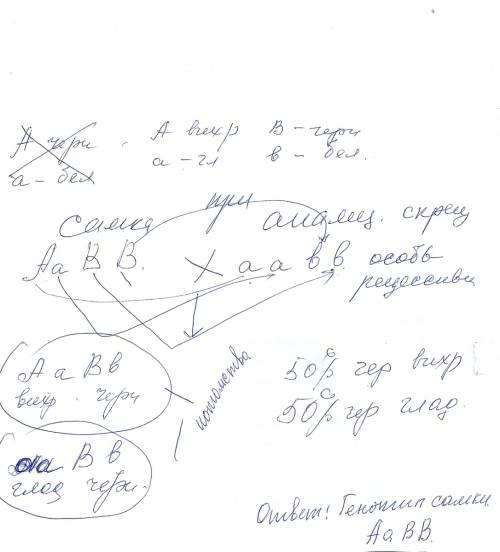 А черн А вихр В – черн
а – бел а – гл в – бел.
самка при анализ. скрещ
АаВВ. X аавв особь
рецессивн
АаВв
вихр. черн
потомство
50% чер вихр
50% чер глад.
ааВв
глад черн.
Ответ! Генотип самки
АаВВ.